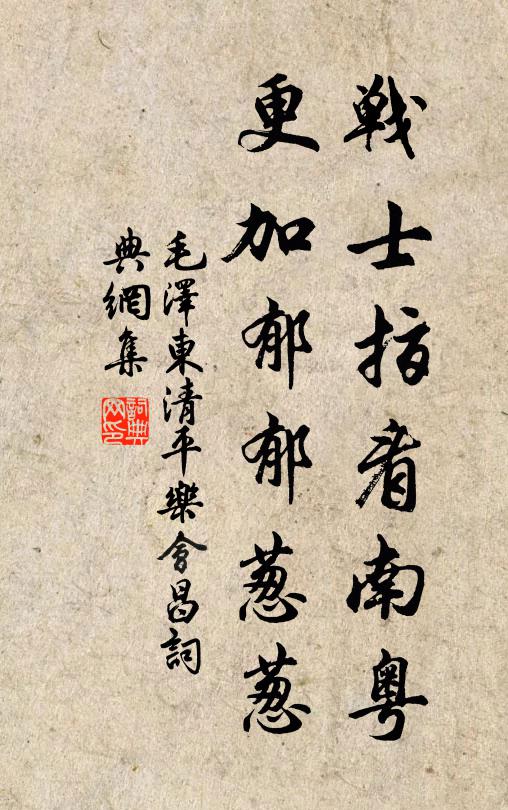 戰士指看南粵
更加郁郁葱葱
毛澤東清平樂會昌詞
典網集
詞典
网印